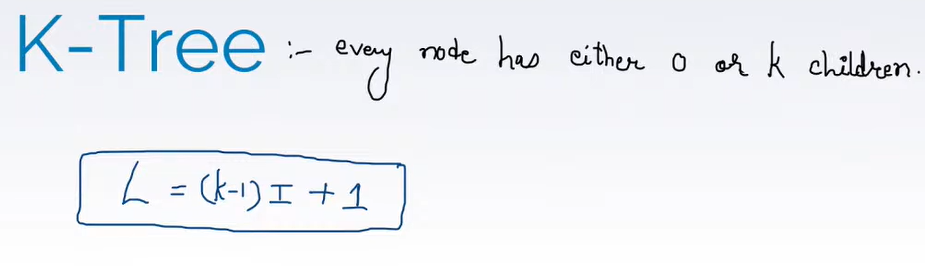 K-Tree :- every node has either 0 or k children.
L = (k-1) I + 1